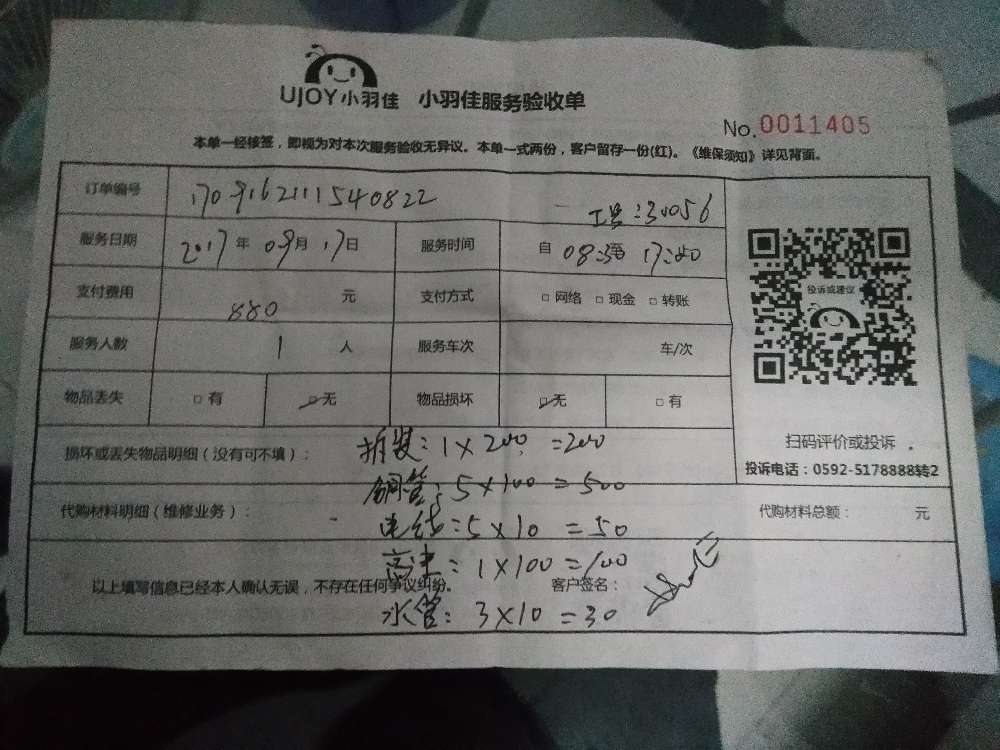 UJOY小羽佳 小羽佳服务验收单
No.0011405
本单一经核签，即视为对本次服务验收无异议。本单一式两份，客户留存一份(红)。《维保须知》详见背面。
订单编号 工号:30056
服务日期 2017年09月17日 服务时间 自 08:30 17:00
支付费用 880 元 支付方式 □ 网络 □ 现金 □ 转账
服务人数 1 人 服务车次 车/次
物品丢失 □ 有 □ 无 物品损坏 □ 无 □ 有
投诉或建议
扫码评价或投诉 。
投诉电话：0592-5178888转2
损坏或丢失物品明细（没有可不填）：
拆装：1×200=200
铜管：5×100=500
代购材料明细（维修业务）： 代购材料总额： 元
电线：5×10=50
1×100=100
以上填写信息已经本人确认无误，不存在任何争议纠纷。 客户签名：
水管：3×10=30